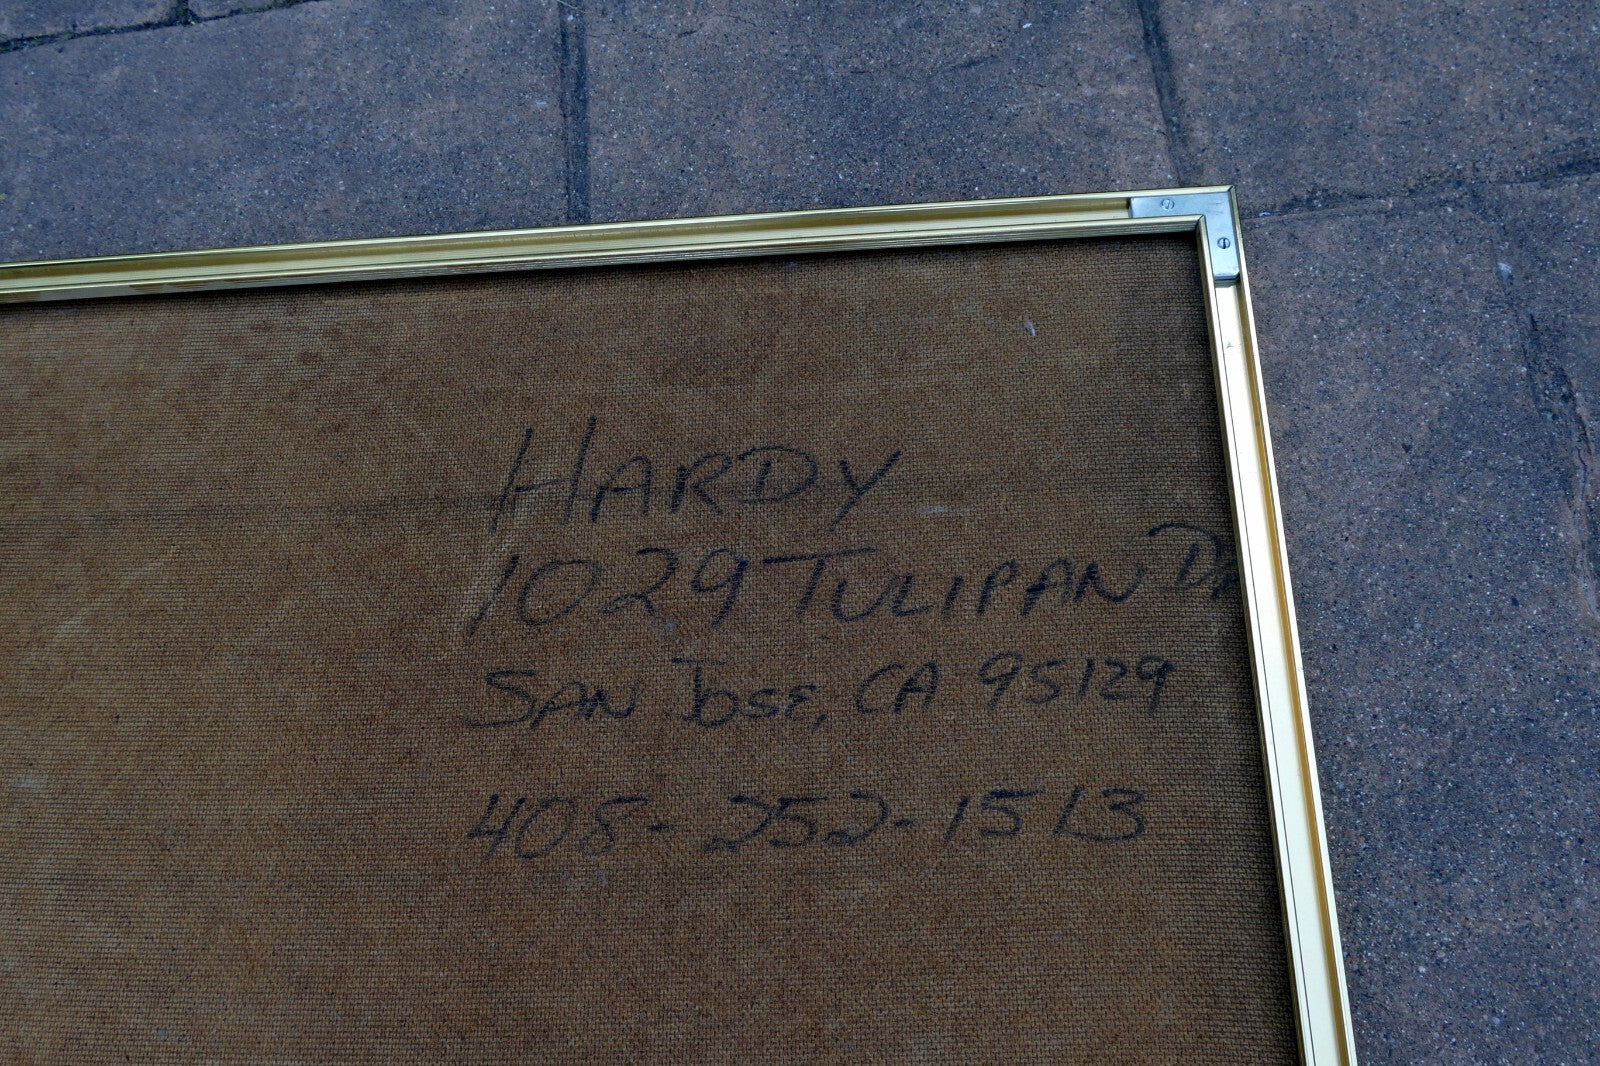 HARDY
1029 TULIPAN DR
SAN JOSE, CA 95129
408-252-1513